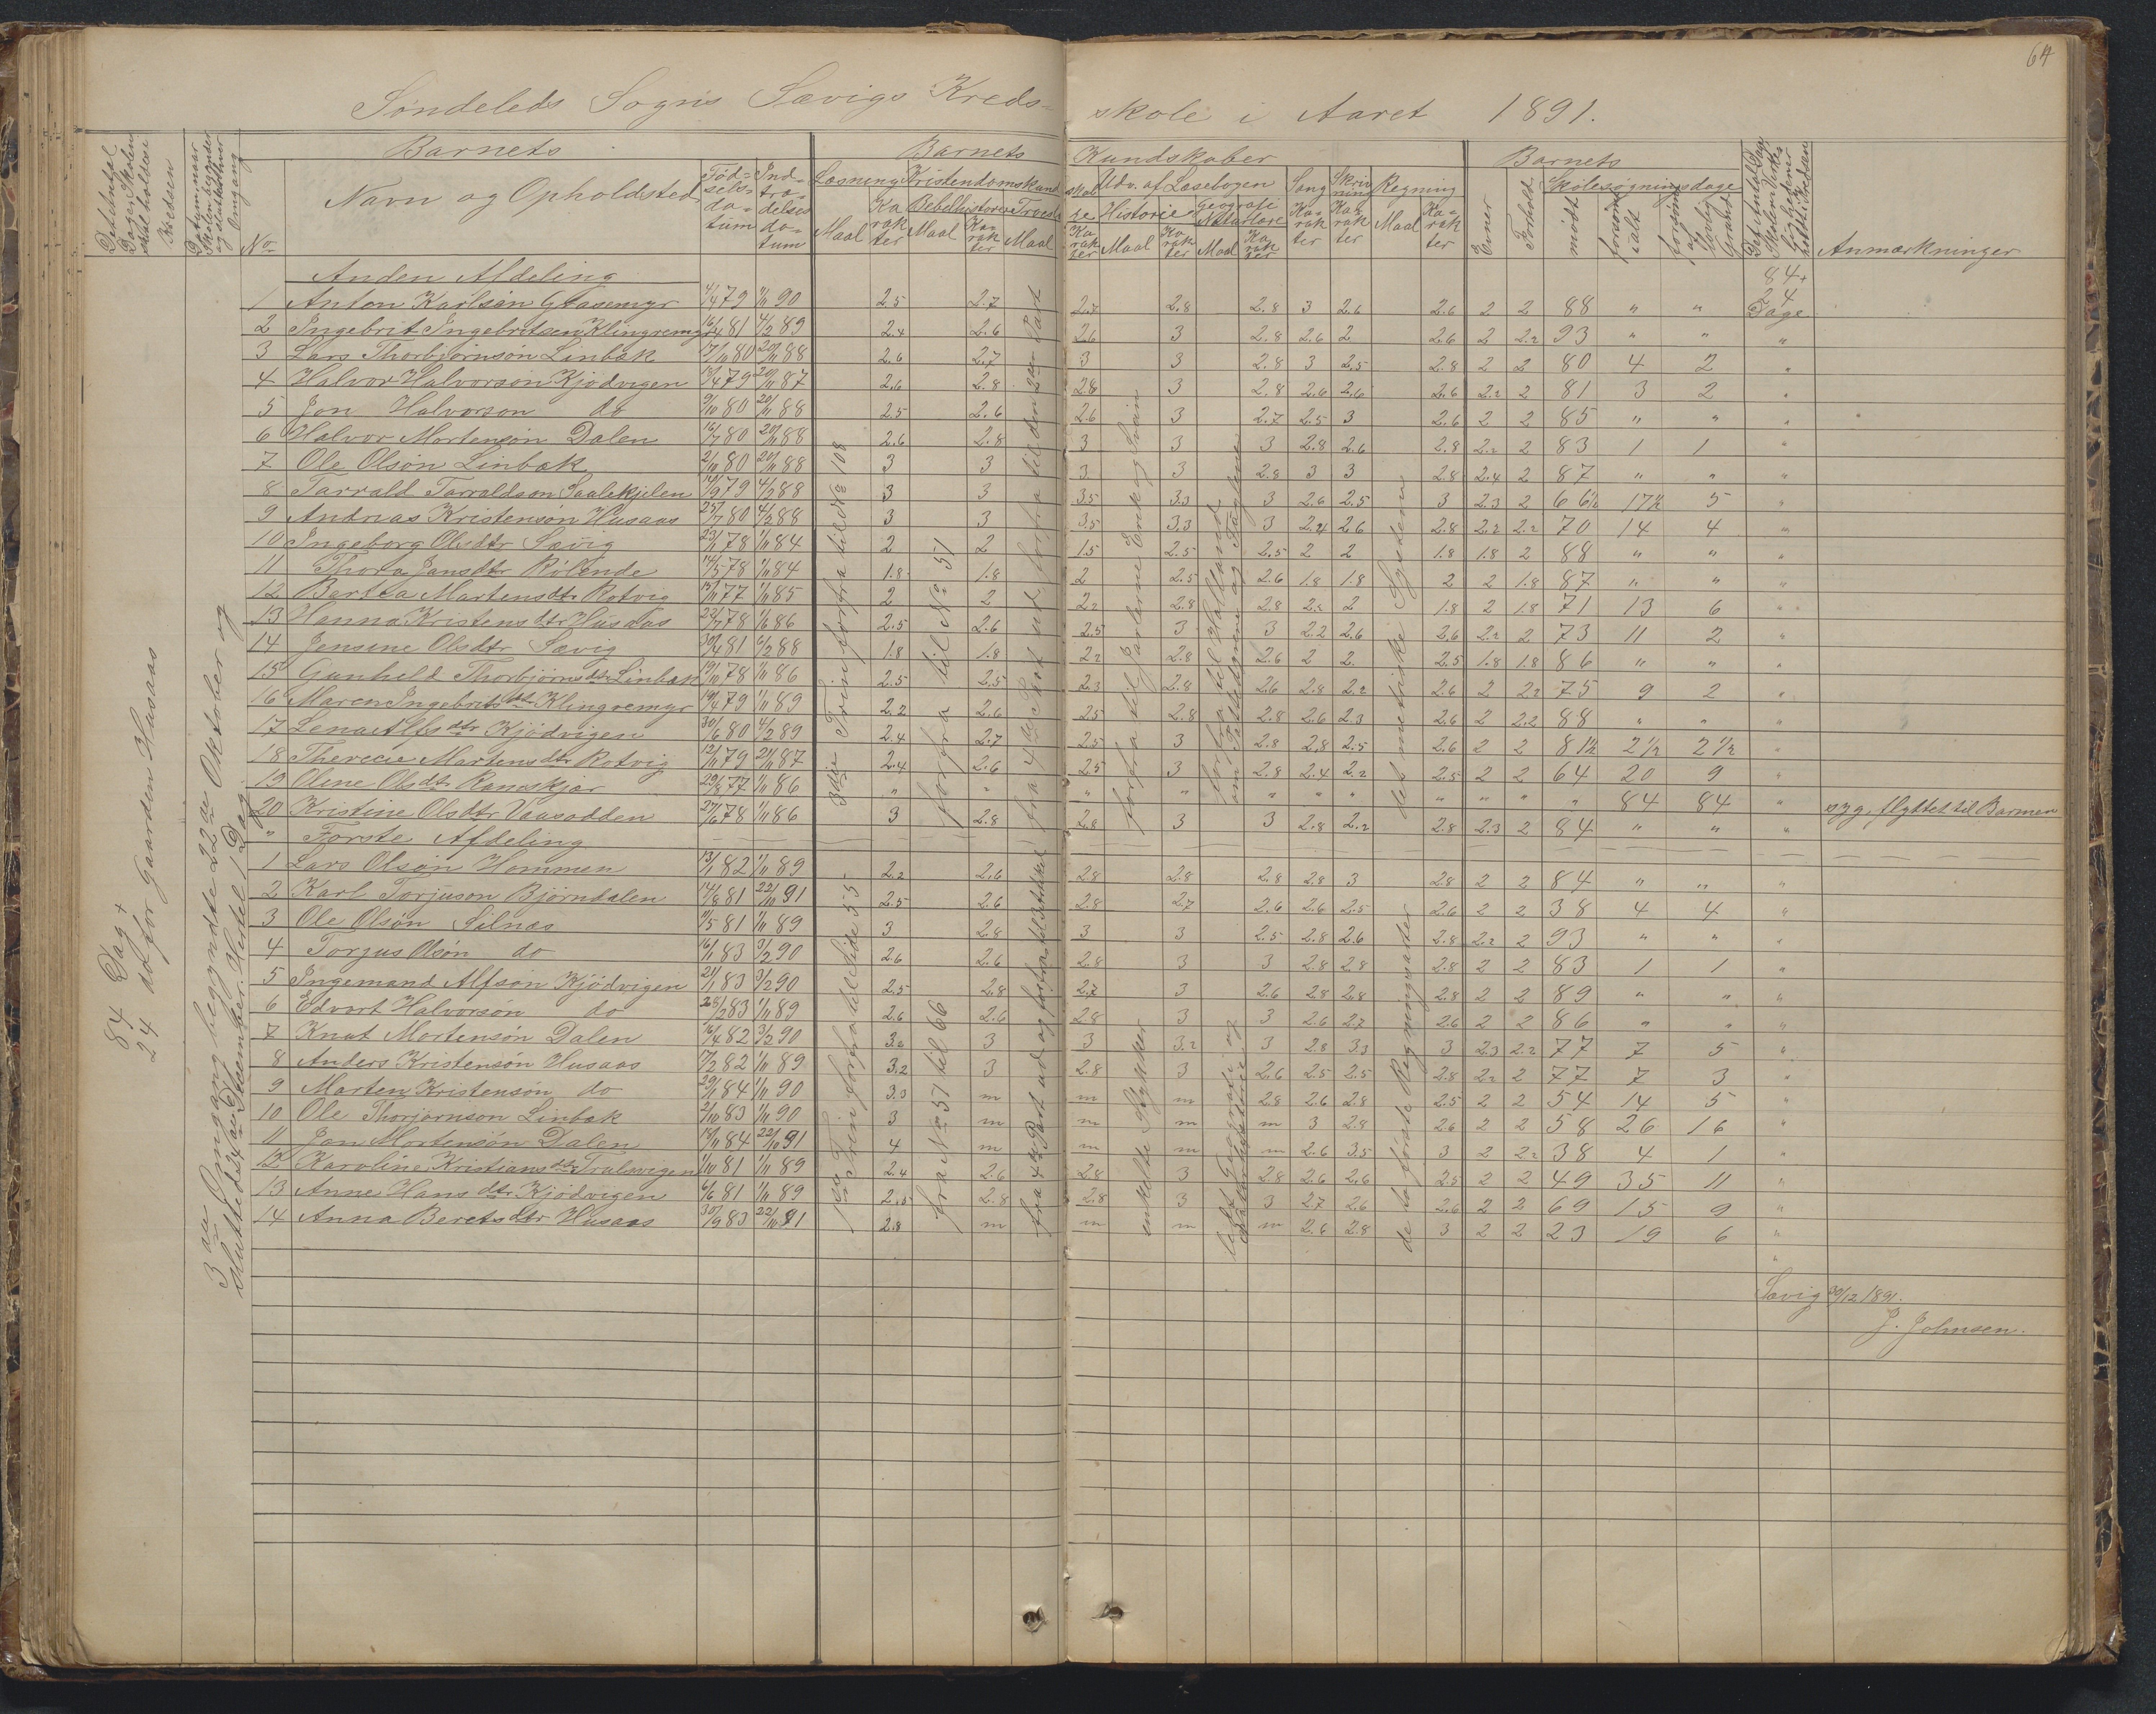 64
Søndeleds Sogns Sævigs Kreds-skole i Aaret 1891.
Det Antal Dage, Skolen skal holdes i Kredsen
Datum, naar Skolen begynder og slutter hver Omgang
Barnets
No
Navn og Opholdsted
Fødselsdatum
Indtrædelsesdatum
Barnets Kundskaber
Læsning Kristendomskundskab Udv. af Læsebogen Sang Skrivning Regning
Maal Karakter Bibelhistorie Troeslære Historie Geografi Naturlære
Barnets
Evner Forhold Skolesøgningsdage
mødt forsømt ialt forsømt af lovlig Grund
Det Antal Dage Skolen i Virkeligheden er holdt i Kredsen
Anmærkninger
84 Dag +
24 do for Gaarden Husaas
3die Omgang begyndte 22de Oktober og
sluttede December. Hertel 1 Dag.
Anden Afdeling
84+
24
Dage
1 Anton Karlsen Glasemyr 4/4 79 1/11 90 2.5 2.7 2.7 2.8 2.8 3 2.6 2.6 2 2 88 " "
2 Ingebrit Ingebritsen Klingremyr 16/4 81 4/2 89 2.4 2.6 2.6 3 2.8 2.6 2 2.6 2 2.2 93 " " "
3 Lars Thorbjørnsøn Linbæk 17/11 80 20/11 88 2.6 2.7 3 3 2.8 3 2.5 2.8 2 2 80 4 2 "
4 Halvor Halvorsøn Kjødvigen 79 20/11 87 2.6 2.8 2.8 3 2.8 2.6 2.6 2.6 2.2 2 81 3 2 "
5 Jon Halvorson do 9/10 80 20/11 88 2.5 2.6 2.6 3 2.7 2.5 3 2.6 2 2 85 " " "
6 Halvor Mortensøn Dalen 16/7 80 20/11 88 2.6 2.8 3 3 3 2.8 2.6 2.8 2.2 2 83 1 1 "
7 Ole Olsøn Linbæk 2/11 80 20/11 88 3 3 3 3 2.8 3 3 2.8 2.4 2 87 " " "
8 Tarrald Tarraldson Saalekjelen 14/9 79 4/2 88 3 3 3.5 3.3 3 2.6 2.5 3 2.3 2 66½ 17½ 5 "
9 Andreas Kristensøn Husaas 25/7 80 4/2 88 3 3 3.5 3.3 3 2.4 2.6 2.8 2.2 2.2 70 14 4 "
10 Ingeborg Olsdtr Sævig 23/11 78 1/11 84 2 2 1.5 2.5 2.5 2 2 1.8 1.8 2 88 " " "
11 Thora Jansdtr Rølende 14/5 78 1/11 84 1.8 1.8 2 2.5 2.6 1.8 1.8 2 2 1.8 87 " " "
12 Bertea Martensdtr Rotvig 77 1/11 85 2 2 2.2 2.8 2.8 2.2 2 1.8 2 1.8 71 13 6 "
13 Hanna Kristensdtr Husaas 22/7 78 86 2.5 2.6 2.5 3 3 2.2 2.6 2.6 2.2 2 73 11 2 "
14 Jensine Olsdtr Sævig 30/4 81 6/2 88 1.8 1.8 2.2 2.8 2.6 2 2 2.5 1.8 1.8 86 " " "
15 Gunhild Thorbjørnsdtr Linbæk 78 1/11 86 2.5 2.5 2.3 2.8 2.6 2.8 2.2 2.6 2 2.2 75 9 2 "
16 Maren Ingebritsdtr Klingremyr 79 1/11 89 2.2 2.6 2.5 2.8 2.8 2.6 2.3 2.6 2 2.2 88 " " "
17 Lena Alfsdtr Kjødvigen 30/6 80 4/2 89 2.4 2.7 2.5 3 2.8 2.8 2.5 2.6 2 2 81½ 2½ 2½ "
18 Therecie Martensdtr Rotvig 12/11 79 21/11 87 2.4 2.6 2.5 3 2.8 2.4 2.2 2.5 2 2 64 20 9 "
19 Olene Olsdtr Ramskjær 29/8 77 1/11 86 " " " " " " " " " " " 84 84 " syg, flyttet til Barmen
20 Kristine Olsdtr Vaasodden 27/6 78 1/11 86 3 2.8 2.8 3 3 2.8 2.2 2.8 2.3 2 84 " " "
3die Trin forfra til Side 108
forfra til No 51
fra 4de Part ud forfra til den 2den Part
forfra til Jarlerne Erik og Svein
forfra til Holland
om Pattedyrene og Fuglene
det metriske System
" Første Afdeling
1 Lars Olsøn Hommen 13/1 82 1/11 89 2.2 2.6 2.8 2.8 2.8 2.8 3 2.8 2 2 84 " " "
2 Karl Torjuson Bjørndalen 14/8 81 22/10 91 2.5 2.6 2.8 2.7 2.6 2.6 2.5 2.6 2 2 38 4 4 "
3 Ole Olsøn Silnæs 81 1/11 89 3 2.8 3 3 2.5 2.8 2.6 2.8 2.2 2 93 " " "
4 Torjus Olsøn do 16/1 83 3/2 90 2.6 2.6 2.8 3 3 2.8 2.8 2.8 2 2 83 1 1 "
5 Ingemand Alfsøn Kjødvigen 21/1 83 3/2 90 2.5 2.8 2.7 3 2.6 2.8 2.8 2.8 2 2 89 " " "
6 Edvart Halvorsøn do 83 1/11 89 2.6 2.6 2.8 3 3 2.6 2.7 2.6 2 2 86 " " "
7 Knut Mortensøn Dalen 16/4 82 3/2 90 3.2 3 3 3.2 3 2.8 3.3 3 2.3 2.2 77 7 5 "
8 Anders Kristensøn Husaas 82 1/11 89 3.2 3 2.8 3 2.6 2.5 2.5 2.8 2.2 2 77 7 3 "
9 Marten Kristensøn do 29/1 84 1/11 90 3.3 m m m 2.8 2.6 2.8 2.5 2 2 54 14 5 "
10 Ole Thorjørnson Linbæk 2/10 83 1/11 90 3 m m m m 3 2.8 2.6 2 2 58 26 16 "
11 Jon Mortensøn Dalen 84 22/10 91 4 m m m m 2.6 3.5 3 2 2.2 38 4 1 "
12 Karoline Kristiansdtr Trulsvigen 1/10 81 1/11 89 2.4 2.6 2.8 3 2.8 2.6 2.6 2.5 2 2 49 35 11 "
13 Anne Hansdtr Kjødvigen 6/6 81 1/11 89 2.5 2.8 2.8 3 3 2.7 2.6 2.6 2 2 69 15 9 "
14 Anna Beretsdtr Husaas 30/9 83 22/10 91 2.8 m m m m 2.6 2.8 3 2 2 23 19 6 "
1ste Trin forfra til Side 55
fra No 57 til 66
fra 4de Part ud og forfra til 3die Artikel
enkelte Stykker
lidt Geografi og
Naturhistorie
de to første Regningsarter
Sævig 30/12 1891.
J. Johnsen.